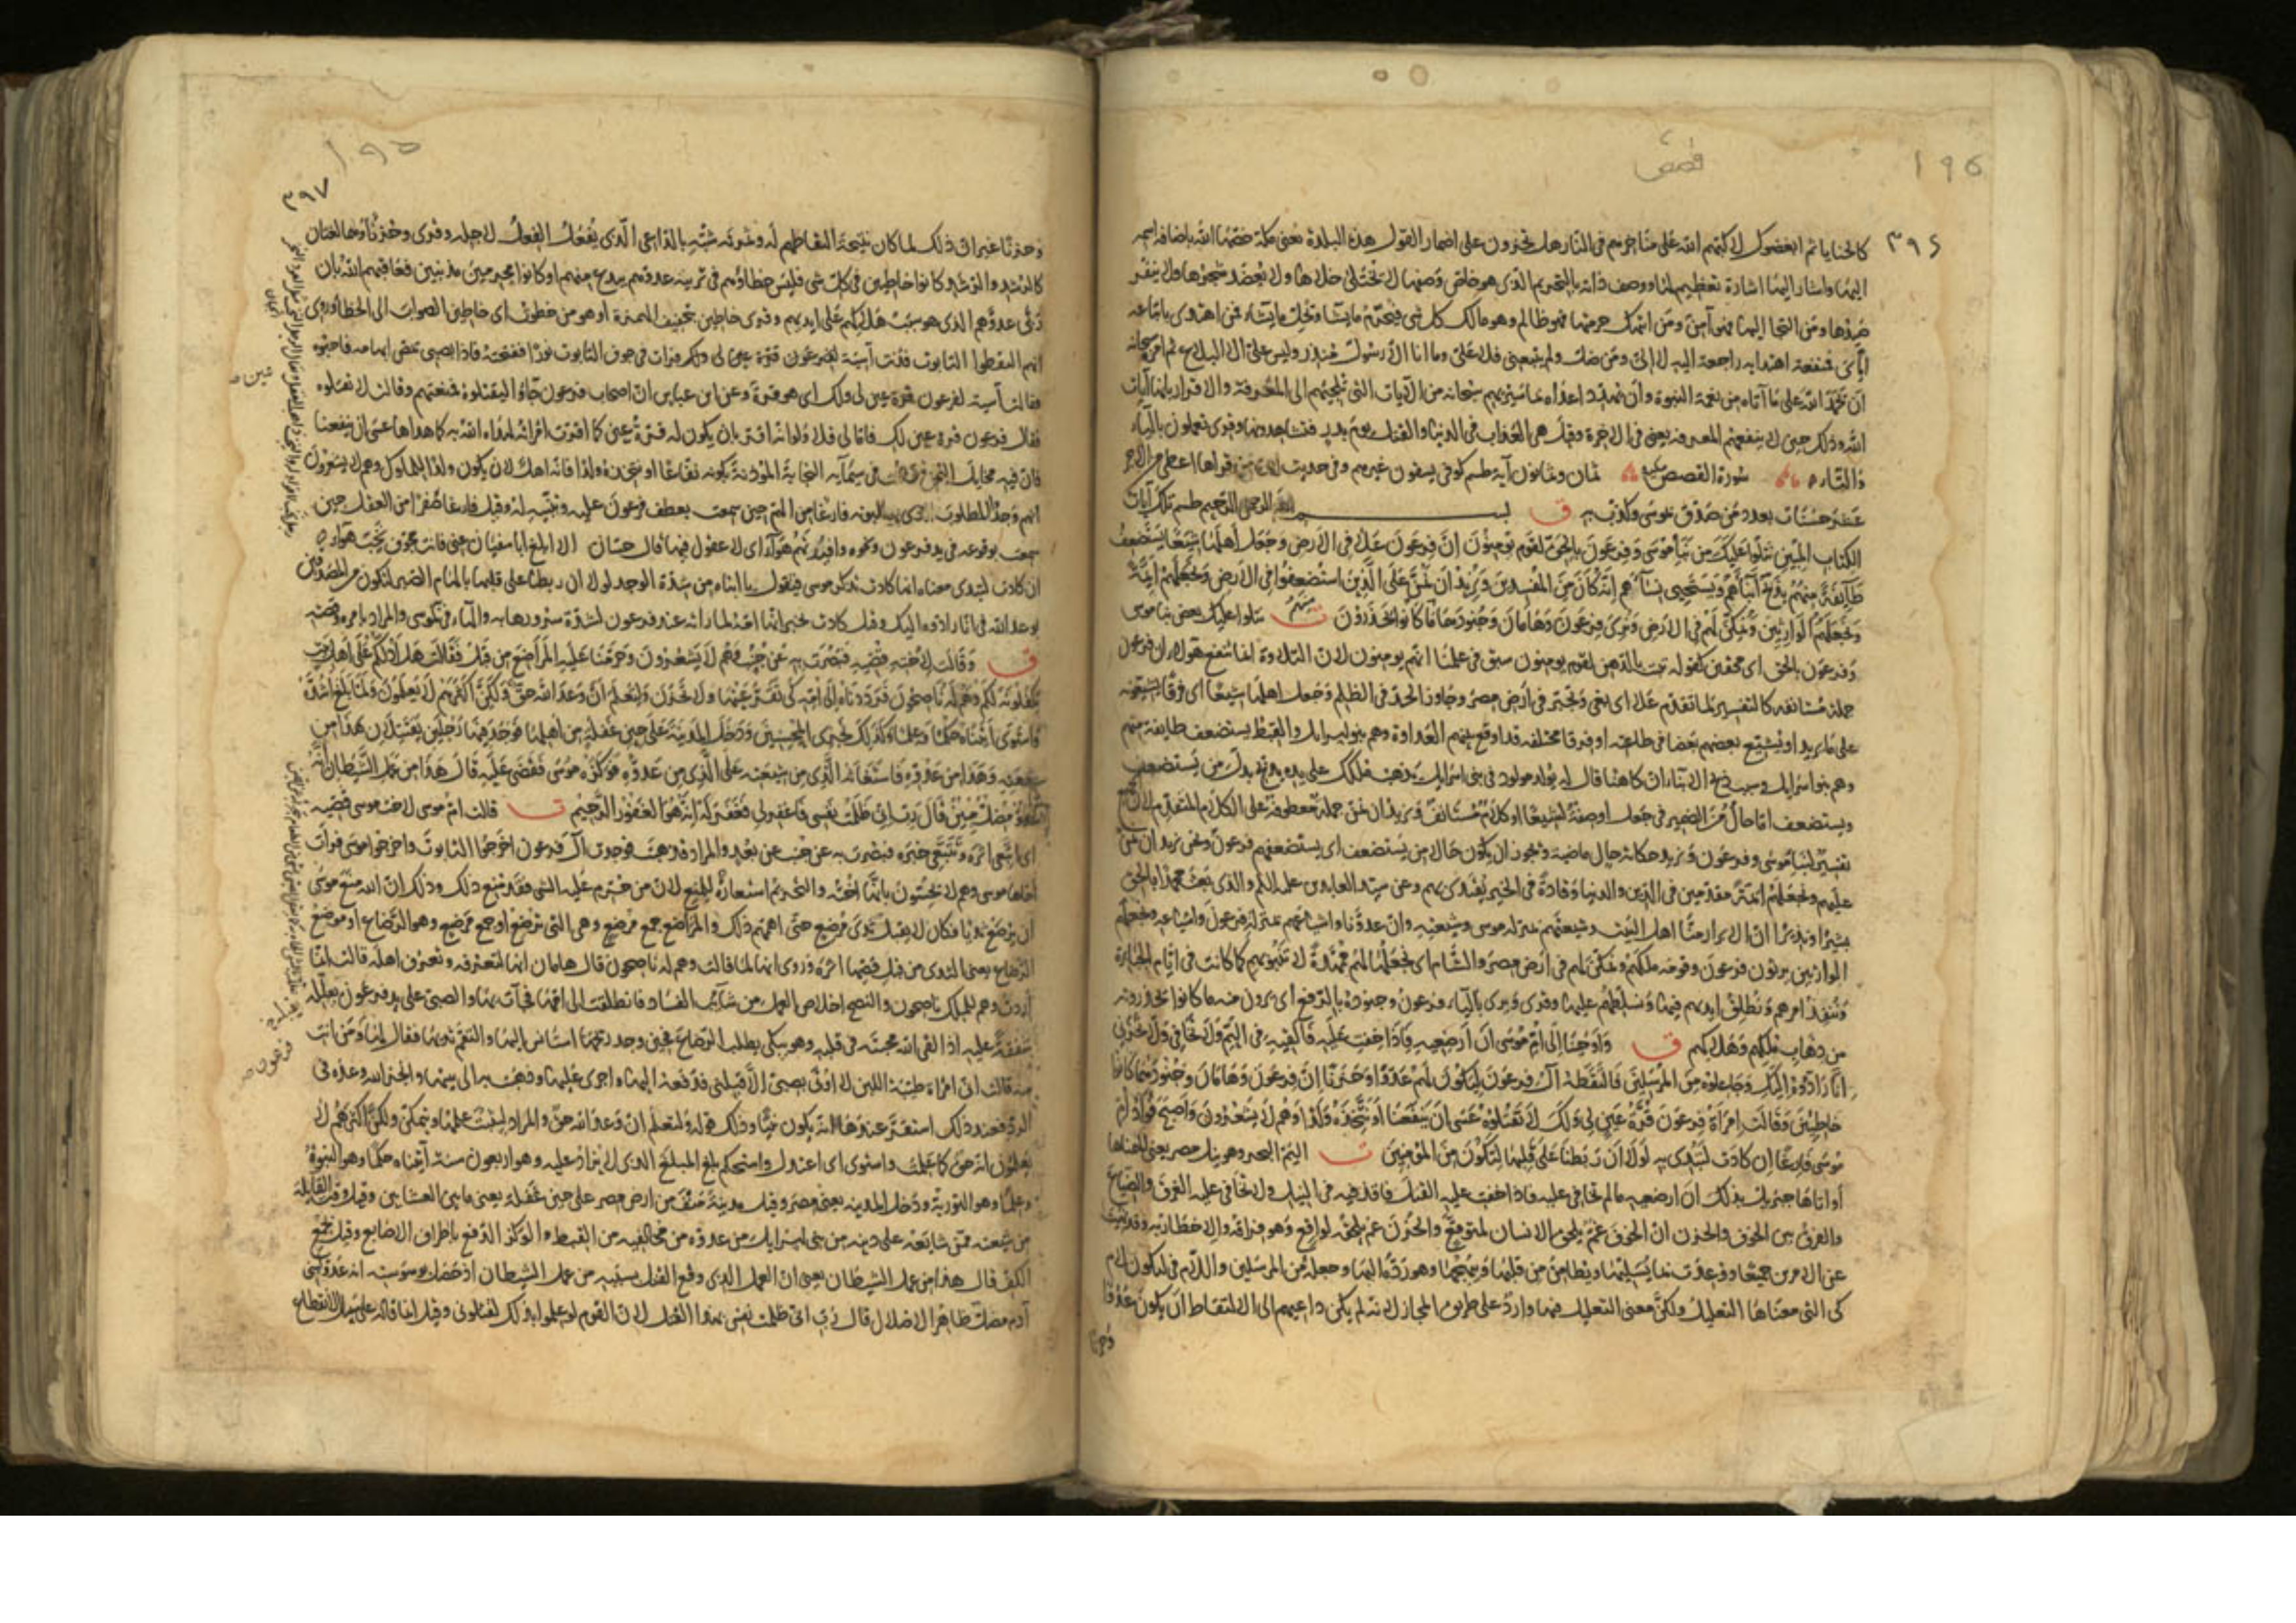 قصص
١٩٥
٣٩٦
كالحنايا ثم ابغضوكم لاكبهم الله على مناخرهم في النار هل تجزون على اضمار القول هذه البلدة يعني مكة خصها الله باضافة اسمه
اليها واشار اليها اشارة تعظيم لها ووصف ذاته بالتحريم الذي هو خاص وصفها لا يختلى خلاها ولا يعضد شجرها ولا ينفر
صيدها ومن التجا اليها فهو آمن ومن انتهك حرمتها فهو ظالم وهو مالك كل شي فيحرم ما يشاء ويحل ما يشاء فمن اهتدى باتباعه
اياى فمنفعة اهتدايه راجعة اليه لا الى ومن ضل ولم يتبعني فلا على وما انا الا رسول منذر وليس على الا البلاغ ثم امره سبحانه
ان يحمد الله على ما آتاه من نعمة النبوة وان يهدد اعداه بما سيريهم سبحانه من الآيات التي تلجيهم الى المعرفة والاقرار بانها آيات
الله وذلك حين لا ينفعهم المعرفة يعني في الاخرة وقيل هي العذاب في الدنيا والقتل يوم بدر فتشاهدونها وقرى تعملون بالتاء
والياء سورة القصص مكية ثمان وثمانون آية طسم كوفي يسقون غيرهم وفي حديث ابي من قراها اعطى من الاجر
عشر حسنات بعدد من صدق بموسى وكذب به ق بسم الله الرحمن الرحيم طسم تلك آيات
الكتاب المبين نتلوا عليك من نبا موسى وفرعون بالحق لقوم يومنون ان فرعون علا في الارض وجعل اهلها شيعا يستضعف
طآئفة منهم يذبح ابناءهم ويستحيى نساءهم انه كان من المفسدين ونريد ان نمن على الذين استضعفوا في الارض ونجعلهم ائمة
ونجعلهم الوارثين ونمكن لهم في الارض ونرى فرعون وهامان وجنودهما منهم ما كانوا يحذرون ت نتلوا عليك بعض نبا موسى
وفرعون بالحق اى محقين كقوله تنبت بالدهن لقوم يومنون سبق في علمنا انهم يومنون لان التلاوة انما تنفع هولاء ان فرعون
جملة مستانفة كالتفسير لما تقدم علا اى بغى وتجبر في ارض مصر وجاوز الحد في الظلم وجعل اهلها شيعا اى فرقا يشيعونه
على ما يريد او يشيع بعضهم بعضا في طاعته او فرقا مختلفة قد اوقع بينهم العداوة وهم بنو اسرايل والقبط يستضعف طايفة منهم
وهم بنو اسرايل وسبب ذبح الابناء ان كاهنا قال له يولد مولود في بني اسرايل يذهب ملكك على يده يذبح بدل من يستضعف
ويستضعف اما حال من الضمير في جعل او صفة لشيعا او كلام مستانف ونريد ان نمن جملة معطوفة على الكلام المتقدم لانها
تفسير لنبا موسى وفرعون ونريد حكاية حال ماضية ويجوز ان يكون حالا من يستضعف اى يستضعفهم فرعون ونحن نريد ان نمن
عليهم ونجعلهم ائمة مقدمين في الدين والدنيا وقادة في الخير يقتدى بهم وعن سيد العابدين عليه السلم والذي بعث محمدا بالحق
بشيرا ونذيرا ان الابرار منا اهل البيت وشيعتهم بمنزلة موسى وشيعته وان عدونا واشياعهم بمنزلة فرعون واشياعه ونجعلهم
الوارثين يرثون فرعون وقومه ملكهم ونمكن لهم في ارض مصر والشام اى نجعلها لهم ممهدة لا تنبو بهم كما كانت في ايام الجبابرة
وننفذ امرهم ونطلق ايديهم فيها ونسلطهم عليها وقرى ويرى بالياء فرعون وجنوده بالرفع اى يرون منهم ما كانوا يحذرونه
من ذهاب ملكهم وهلاكهم ق واوحينا الى ام موسى ان ارضعيه فاذا خفت عليه فالقيه في اليم ولا تخافي ولا تحزني
انا رادوه اليك وجاعلوه من المرسلين فالتقطه آل فرعون ليكون لهم عدوا وحزنا ان فرعون وهامان وجنودهما كانوا
خاطئين وقالت امراة فرعون قرة عين لي ولك لا تقتلوه عسى ان ينفعنا او نتخذه ولدا وهم لا يشعرون واصبح فؤاد ام
موسى فارغا ان كادت لتبدى به لولا ان ربطنا على قلبها لتكون من المومنين ت اليم البحر وهو نيل مصر يعني الهمناها
او اتاها جبريل بذلك ان ارضعيه مالم تخافي عليه فاذا خفت عليه القتل فاقذفيه في النيل ولا تخافي عليه الغرق والضياع
والفرق بين الخوف والحزن ان الخوف غم يلحق الانسان لمتوقع والحزن غم يلحقه لواقع وهو فراقه والاخطار به وقد نهيت
عن الامرين جميعا ووعدت بما يسليها ويطامن من قلبها ويبهجها وهو رده اليها وجعله من المرسلين واللام في ليكون لام
كى التي معناها التعليل ولكن معنى التعليل فيها وارد على طريق المجاز لانه لم يكن داعيهم الى الالتقاط ان يكون عدوا
وحزنا
١٩٥
٣٩٧
وحزنا غير ان ذلك لما كان نتيجة التقاطهم له وثمرته شبه بالداعي الذي يفعل الفعل لاجله وقرى وحزنا وهما لغتان
كالرشد والرشد كانوا خاطين في كل شي فليس خطاؤهم في تربية عدوهم ببدع منهم او كانوا مجرمين مذنبين فعاقبهم الله بان
ربى عدوهم الذي هو سبب هلاكهم على ايديهم وقرى خاطين بتخفيف الهمزة او هو من خطوت اى خاطين الصواب الى الخطا وروى
انهم التقطوا التابوت فدنت آسية فرات في جوف التابوت نورا ففتحته فاذا بصبي يمص ابهامه فاحبوه
فقالت آسية لفرعون قرة عين لي ولك اى هو قرة وعن ابن عباس ان اصحاب فرعون جاؤا ليقتلوه فمنعتهم وقالت لا تقتلوه
فقال فرعون قرة عين لك فاما لي فلا ولو انه اقر بان يكون له قرة عين كما اقرت امراته لهداه الله به كما هداها عسى ان ينفعنا
فان فيه مخايل اليمن في سيمآيه النجابة المؤذنة بكونه نفاعا او نتخذه ولدا فانه اهل لان يكون ولدا للملوك وهم لا يشعرون
انهم وجدوا المطلوب الذي يطلبونه فارغا من الهم حين سمعت بعطف فرعون عليه وتبنيه له وقيل فارغا صفرا من العقل حين
سمعت بوقوعه في يد فرعون ونحوه وافيدتهم هوآء اى لا عقول فيها قال حسان الا ابلغ ابا سفيان عني فانت مجوف نخب هواء
ان كادت لتبدى معناه انها كادت تذكر موسى فتقول يا ابناه من شدة الوجد لولا ان ربطنا على قلبها بالهام الصبر لتكون من المصدقين
بوعد الله في انا رادوه اليك وقيل كادت تخبر انها امه لما راته عند فرعون لشدة سرورها به والهاء في به لموسى والمراد بامره وقصته
ق وقالت لاخته قصيه فبصرت به عن جنب وهم لا يشعرون وحرمنا عليه المراضع من قبل فقالت هل ادلكم على اهل بيت
يكفلونه لكم وهم له ناصحون فرددناه الى امه كى تقر عينها ولا تحزن ولتعلم ان وعد الله حق ولكن اكثرهم لا يعلمون ولما بلغ اشده
واستوى آتيناه حكما وعلما وكذلك نجزى المحسنين ودخل المدينة على حين غفلة من اهلها فوجد فيها رجلين يقتتلان هذا من
شيعته وهذا من عدوه فاستغاثه الذي من شيعته على الذي من عدوه فوكزه موسى فقضى عليه قال هذا من عمل الشيطان انه
عدو مضل مبين قال رب اني ظلمت نفسي فاغفر لي فغفر له انه هو الغفور الرحيم ت قالت ام موسى لاخت موسى قصيه
اى اتبعي اثره وتتبعي خبره فبصرت به عن جنب عن بعد والمراد فذهبت فوجدت آل فرعون اخرجوا التابوت واخرجوا موسى فرات
اخاها موسى وهم لا يحسون بانها اخته والتحريم استعارة للمنع لان من حرم عليه الشى فقد منع ذلك وذلك ان الله منع موسى
ان يرضع ثديا فكان لا يقبل ثدى مرضع حتى اهمهم ذلك والمراضع جمع مرضع وهي التي ترضع او جمع مرضع وهو الرضاع او موضع
الرضاع يعني الثدى من قبل قصها اثره وروى انها لما قالت وهم له ناصحون قال هامان انها لتعرفه وتعرف اهله قالت انما
اردت وهم للملك ناصحون والنصح اخلاص العمل من شآئب الفساد فانطلقت الى امها فجآت بها والصبي على يد فرعون يعلله
شفقة عليه اذ القى الله محبته في قلبه وهو يبكي يطلب الرضاع فحين وجد ريحها استانس اليها والتقم ثديها فقال لها ومن انت
منه قالت اني امراة طيبة اللبن لا اوتى بصبي الا قبلني فدفعه اليها واجرى عليها وذهبت به الى بيتها وانجز الله وعده في
الرد فعند ذلك استقر عندها انه يكون نبيا وذلك قوله ولتعلم ان وعد الله حق والمراد ليثبت علمها ويتمكن ولكن اكثرهم لا
يعلمون انه حق كما علمت واستوى اى اعتدل واستحكم بلغ المبلغ الذي لا يزاد عليه وهو اربعون سنة آتيناه حكما وهو النبوة
وعلما وهو التورية ودخل المدينة يعني مصر وقيل مدينة منف من ارض مصر على حين غفلة يعني ما بين العشاين وقيل وقت القايلة
من شيعته ممن شايعه على دينه من بني اسرايل من عدوه من مخالفيه من القبط والوكز الدفع باطراف الاصابع وقيل بجمع
الكف قال هذا من عمل الشيطان يعني ان العمل الذي وقع القتل بسببه من عمل الشيطان اذ حصل بوسوسته انه عدو لبني
آدم مضل ظاهر الاضلال قال رب اني ظلمت نفسي بهذا القتل لان القوم لو علموا بذلك لقتلوني وقيل انما قاله على سبيل الانقطاع